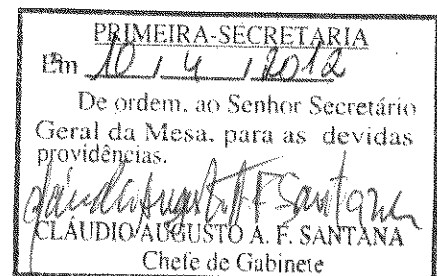 PRIMEIRA-SECRETARIA
Em 10 / 4 / 2012
De ordem, ao Senhor Secretário
Geral da Mesa, para as devidas
providências.
Cláudio Augusto A F Santana
CLÁUDIO AUGUSTO A. F. SANTANA
Chefe de Gabinete